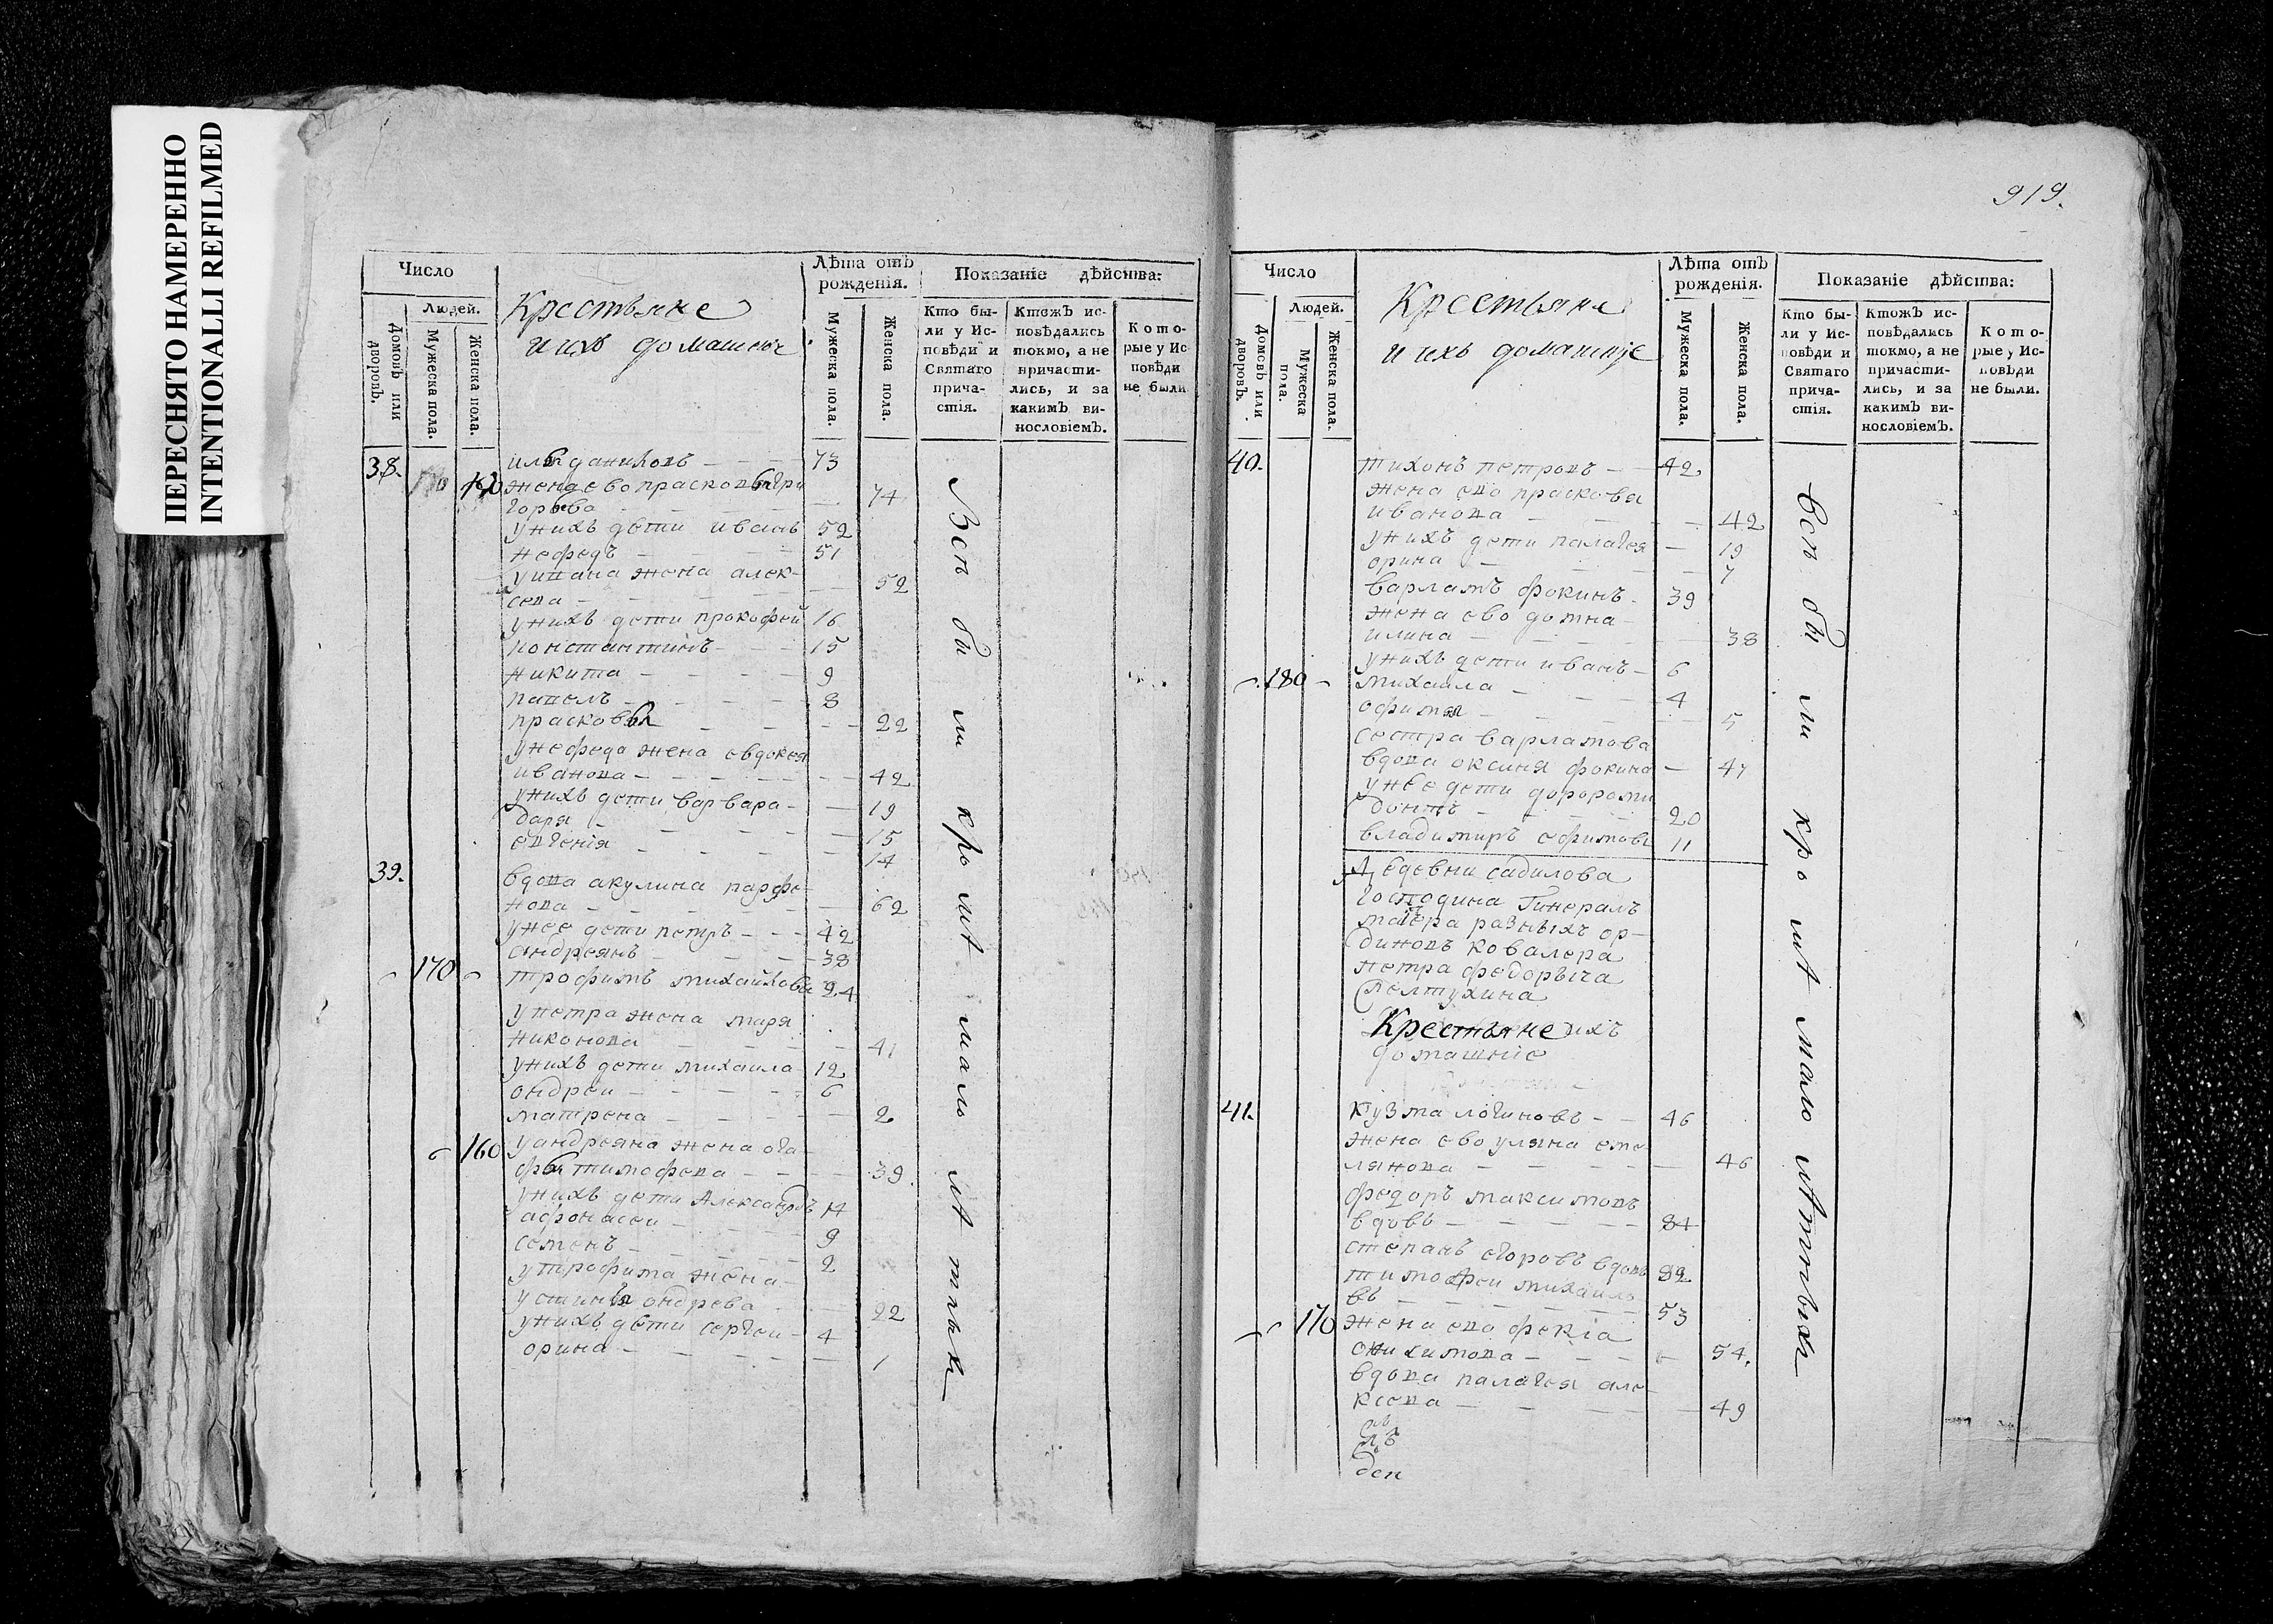 ПЕРЕСНЯТО НАМЕРЕННО
INTENTIONALLI REFILMED
Число
Людей.
Домовъ или дворовъ.
Мужеска пола.
Женска пола.
Крестьяне
и ихъ домашніе
Лѣта отъ рожденія.
Мужеска пола.
Женска пола.
Показаніе дѣйства:
Кто были у Исповѣди и Святаго причастія.
Ктожъ исповѣдались токмо, а не причастились, и за какимъ винословіемъ.
Которые у Исповѣди не были
38.
илья даниловъ — 73
жена ево прасковья гри
горьева — 74
у нихъ дети иванъ 52
нефедъ — 51
у ивана жена алек-
сева — 52
у нихъ дети прокофей 16
константинъ — 15
никита — 9
павелъ — 8
прасковья — 22
у нефеда жена евдокея
иванова — 42
у нихъ дети варвара — 19
даря — 15
евгенія — 14
39.
вдова акулина парфе-
нова — 62
у нее дети петръ — 42
андреянъ — 38
170
трофимъ михайловъ 24
у петра жена маря
никонова — 41
у нихъ дети михаила 12
ондреи — 6
матрена — 2
160
у андреяна жена ога-
фья тимофева — 39
у нихъ дети Александръ 14
афонасеи — 9
семенъ — 2
у трофима жена
устинья ондрева — 22
у нихъ дети сергеи — 4
орина — 1
Всѣ были кромѣ малолѣтных
919.
Число
Людей.
Домовъ или дворовъ.
Мужеска пола.
Женска пола.
Крестьяне
и ихъ домашніе
Лѣта отъ рожденія.
Мужеска пола.
Женска пола.
Показаніе дѣйства:
Кто были у Исповѣди и Святаго причастія.
Ктожъ исповѣдались токмо, а не причастились, и за какимъ винословіемъ.
Которые у Исповѣди не были.
40.
тихонъ петровъ — 42
жена ево прасковя
иванова — 42
у нихъ дети палагея — 19
орина — 7
варламъ фокинъ — 39
жена ево домна
илина — 38
у нихъ дети иванъ — 6
180
михаила — 4
офимя — 5
сестра варламова
вдова оксиня фокина — 47
у нее дети
20
владимиръ ефимовъ 11
Деревни садилова
Господина Генералъ
маіера разныхъ ор-
диновъ ковалера
петра федорыча
Крестьяне ихъ
домашніе
41.
кузма логиновъ — 46
жена ево уляна еме
лянова — 46
федоръ максимовъ
вдовъ — 84
степанъ егоровъ вдовъ 82
тимофеи михаило
въ — 53
170
жена ево фекла
54.
вдова палагея але-
ксева — 49
Всѣ были кромѣ малолѣтныхъ